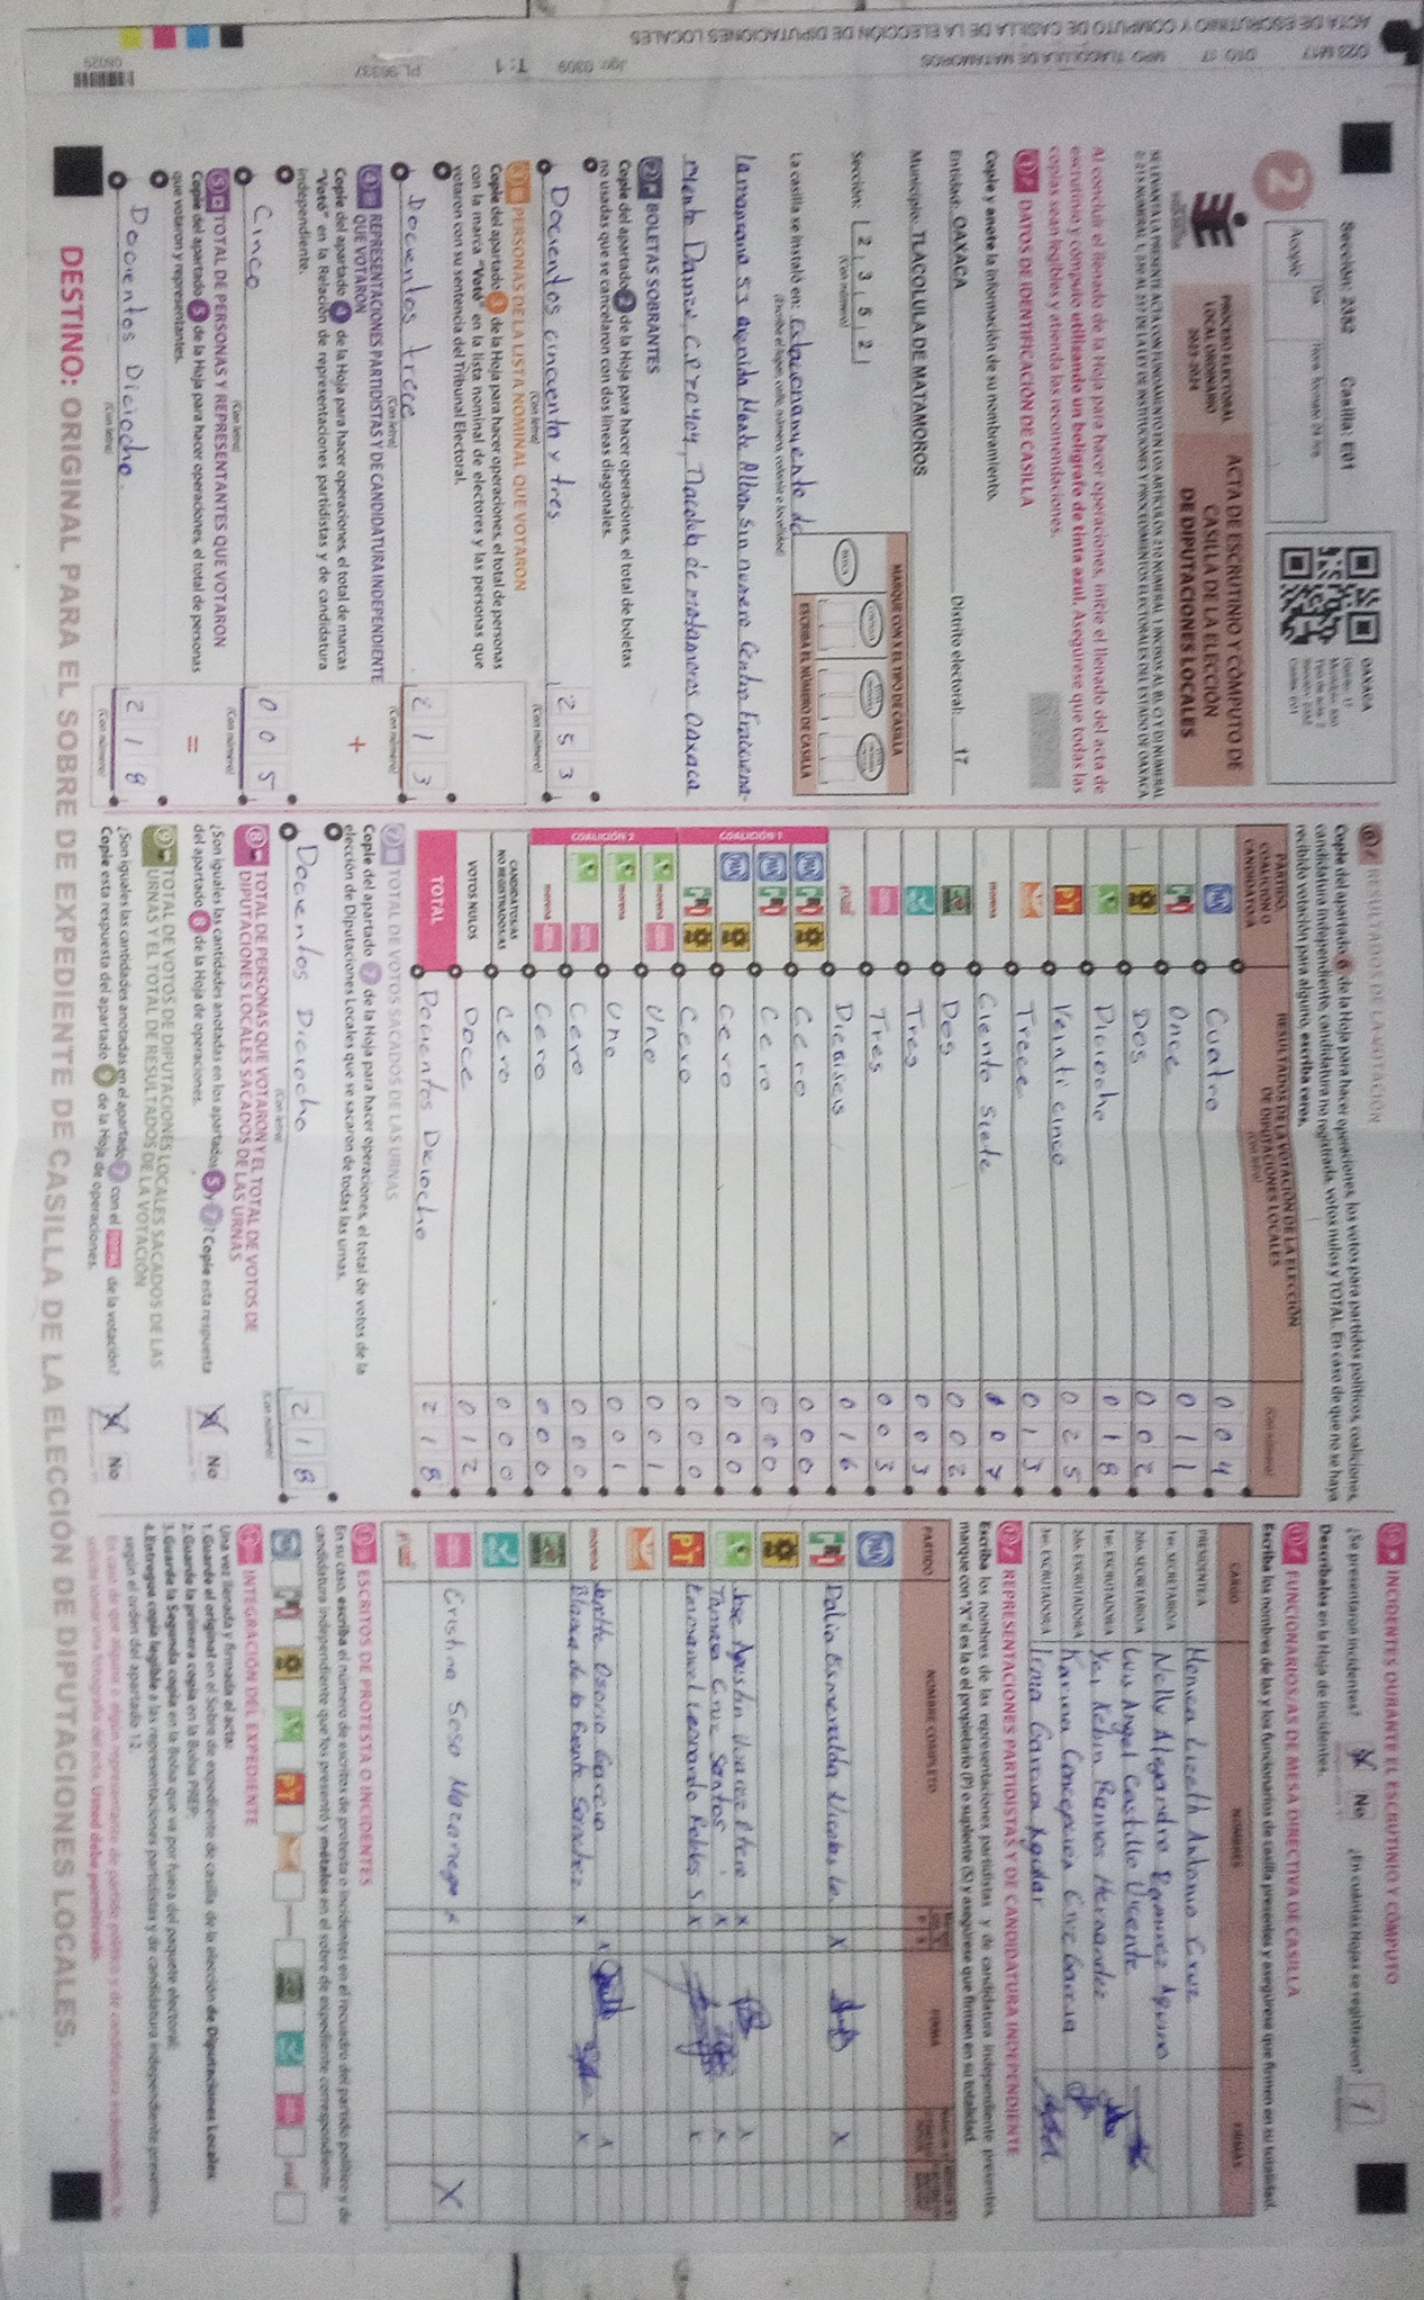 Sección: 2352 Casilla: E01
2
Acopio
Día
PROCESO ELECTORAL
LOCAL ORDINARIO
2023-2024
ACTA DE ESCRUTINIO Y CÓMPUTO DE
CASILLA DE LA ELECCIÓN
DE DIPUTACIONES LOCALES
OAXACA
Al concluir el llenado de la Hoja para hacer operaciones, inicie el llenado del acta de
escrutinio y cómputo utilizando un bolígrafo de tinta azul. Asegúrese que todas las
copias sean legibles y atienda las recomendaciones.
1 DATOS DE IDENTIFICACIÓN DE CASILLA
Copie y anote la información de su nombramiento.
Entidad: OAXACA Distrito electoral: 17
Municipio: TLACOLULA DE MATAMOROS
Sección: 2 3 5 2
(Con número)
MARQUE CON X EL TIPO DE CASILLA
ESCRIBA EL NÚMERO DE CASILLA
La casilla se instaló en: Estacionamiento de
la manzana 53 avenida Monte Alban sin numero Centro Fracciona-
miento Dainzu, C.P 70404, Tlacolula de matamoros Oaxaca
2 BOLETAS SOBRANTES
Copie del apartado 2 de la Hoja para hacer operaciones, el total de boletas
no usadas que se cancelaron con dos líneas diagonales.
Docientos cincuenta y tres 2 5 3
(Con letra) (Con número)
3 PERSONAS DE LA LISTA NOMINAL QUE VOTARON
Copie del apartado 3 de la Hoja para hacer operaciones, el total de personas
con la marca "Votó" en la lista nominal de electores y las personas que
votaron con su sentencia del Tribunal Electoral.
Docientos trece 2 1 3
(Con letra) (Con número)
4 REPRESENTACIONES PARTIDISTAS Y DE CANDIDATURA INDEPENDIENTE
QUE VOTARON
Copie del apartado 4 de la Hoja para hacer operaciones, el total de marcas
"Votó" en la Relación de representaciones partidistas y de candidatura
independiente.
+
Cinco 0 0 5
(Con letra) (Con número)
5 TOTAL DE PERSONAS Y REPRESENTANTES QUE VOTARON
Copie del apartado 5 de la Hoja para hacer operaciones, el total de personas
que votaron y representantes.
=
Docientos Diciocho 2 1 8
(Con letra) (Con número)
6 RESULTADOS DE LA VOTACIÓN
Copie del apartado 6 de la Hoja para hacer operaciones, los votos para partidos políticos, coaliciones,
candidatura independiente, candidatura no registrada, votos nulos y TOTAL. En caso de que no se haya
recibido votación para alguno, escriba ceros.
PARTIDO,
COALICIÓN O
CANDIDATO/A
RESULTADOS DE LA VOTACIÓN DE LA ELECCIÓN
DE DIPUTACIONES LOCALES
PAN Cuatro 0 0 4
PRI Once 0 1 1
Dos 0 0 2
Diciocho 0 1 8
PT Veinti cinco 0 2 5
Trece 0 1 3
morena Ciento siete 1 0 7
Dos 0 0 2
Tres 0 0 3
Tres 0 0 3
Dieciseis 0 1 6
COALICIÓN 1
PAN PRI Cero 0 0 0
PAN PRI Cero 0 0 0
PAN Cero 0 0 0
PRI Cero 0 0 0
COALICIÓN 2
morena Uno 0 0 1
morena Uno 0 0 1
Cero 0 0 0
morena Cero 0 0 0
CANDIDATURAS
NO REGISTRADAS Cero 0 0 0
VOTOS NULOS Doce 0 1 2
TOTAL Docientos Deciocho 2 1 8
7 TOTAL DE VOTOS SACADOS DE LAS URNAS
Copie del apartado 7 de la Hoja para hacer operaciones, el total de votos de la
elección de Diputaciones Locales que se sacaron de todas las urnas.
Docientos Diciocho 2 1 8
(Con letra) (Con número)
8 TOTAL DE PERSONAS QUE VOTARON Y EL TOTAL DE VOTOS DE
DIPUTACIONES LOCALES SACADOS DE LAS URNAS
¿Son iguales las cantidades anotadas en los apartados 5 y 7? Copie esta respuesta
del apartado 8 de la Hoja de operaciones. No
9 TOTAL DE VOTOS DE DIPUTACIONES LOCALES SACADOS DE LAS
URNAS Y EL TOTAL DE RESULTADOS DE LA VOTACIÓN
¿Son iguales las cantidades anotadas en el apartado 7 con el TOTAL de la votación?
Copie esta respuesta del apartado 9 de la Hoja de operaciones. No
INCIDENTES DURANTE EL ESCRUTINIO Y CÓMPUTO
¿Se presentaron incidentes? No ¿En cuántas Hojas se registraron? 1
Descríbalos en la Hoja de incidentes.
FUNCIONARIOS/AS DE MESA DIRECTIVA DE CASILLA
Escriba los nombres de las y los funcionarios de casilla presentes y asegúrese que firmen en su totalidad.
CARGO NOMBRES FIRMAS
PRESIDENTE/A Lizeth Antonio Cruz
1er. SECRETARIO/A Nelly Alejandra Ramirez Aquino
2do. SECRETARIO/A Luis Angel Castillo Vicente
1er. ESCRUTADOR/A Kebin Ramos Hernandez
2do. ESCRUTADOR/A Karina Concepcion Cruz Garcia
3er. ESCRUTADOR/A Irma Garcia Aguilar
REPRESENTACIONES PARTIDISTAS Y DE CANDIDATURA INDEPENDIENTE
Escriba los nombres de las representaciones partidistas y de candidatura independiente presentes,
marque con "X" si es la o el propietario (P) o suplente (S) y asegúrese que firmen en su totalidad.
PARTIDO NOMBRE COMPLETO FIRMA
PAN
PRI Dalia Esmeralda Nicolas X X
Jose Agustin X X
Tamara Cruz Santos X X
PT Emmanuel Leonardo Robles S X X
morena Ivette Osorio Garcia X X
Blanca de la Fuente Sanchez X X
Cristina Soso X X
ESCRITOS DE PROTESTA O INCIDENTES
En su caso, escriba el número de escritos de protesta o incidentes en el recuadro del partido político y de
candidatura independiente que los presentó y métalos en el sobre de expediente correspondiente.
INTEGRACIÓN DEL EXPEDIENTE
Una vez llenada y firmada el acta:
1.Guarde el original en el Sobre de expediente de casilla de la elección de Diputaciones Locales.
2.Guarde la primera copia en la Bolsa PREP.
3.Guarde la Segunda copia en la Bolsa que va por fuera del paquete electoral.
4.Entregue copia legible a las representaciones partidistas y de candidatura independiente presentes,
según el orden del apartado 12.
DESTINO: ORIGINAL PARA EL SOBRE DE EXPEDIENTE DE CASILLA DE LA ELECCIÓN DE DIPUTACIONES LOCALES.
ACTA DE ESCRUTINIO Y COMPUTO DE CASILLA DE LA ELECCIÓN DE DIPUTACIONES LOCALES
DTO 17 MPO TLACOLULA DE MATAMOROS
T: 1